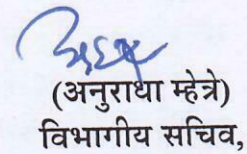 (अनुराधा म्हेत्रे)
विभागीय सचिव,